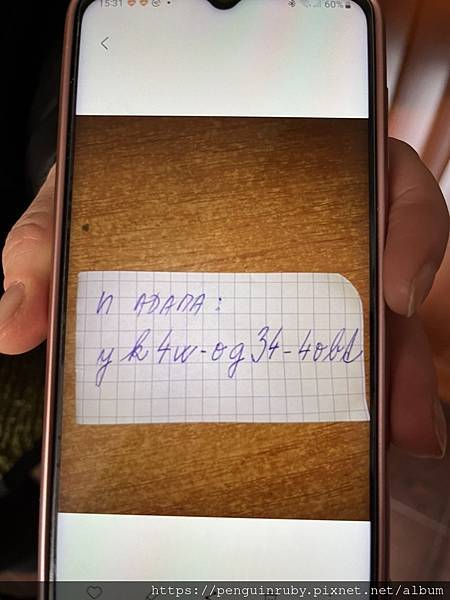 15:31
60%
И АДАПА:
yk4w-og34-4obt
https://penguinruby.pixnet.net/album